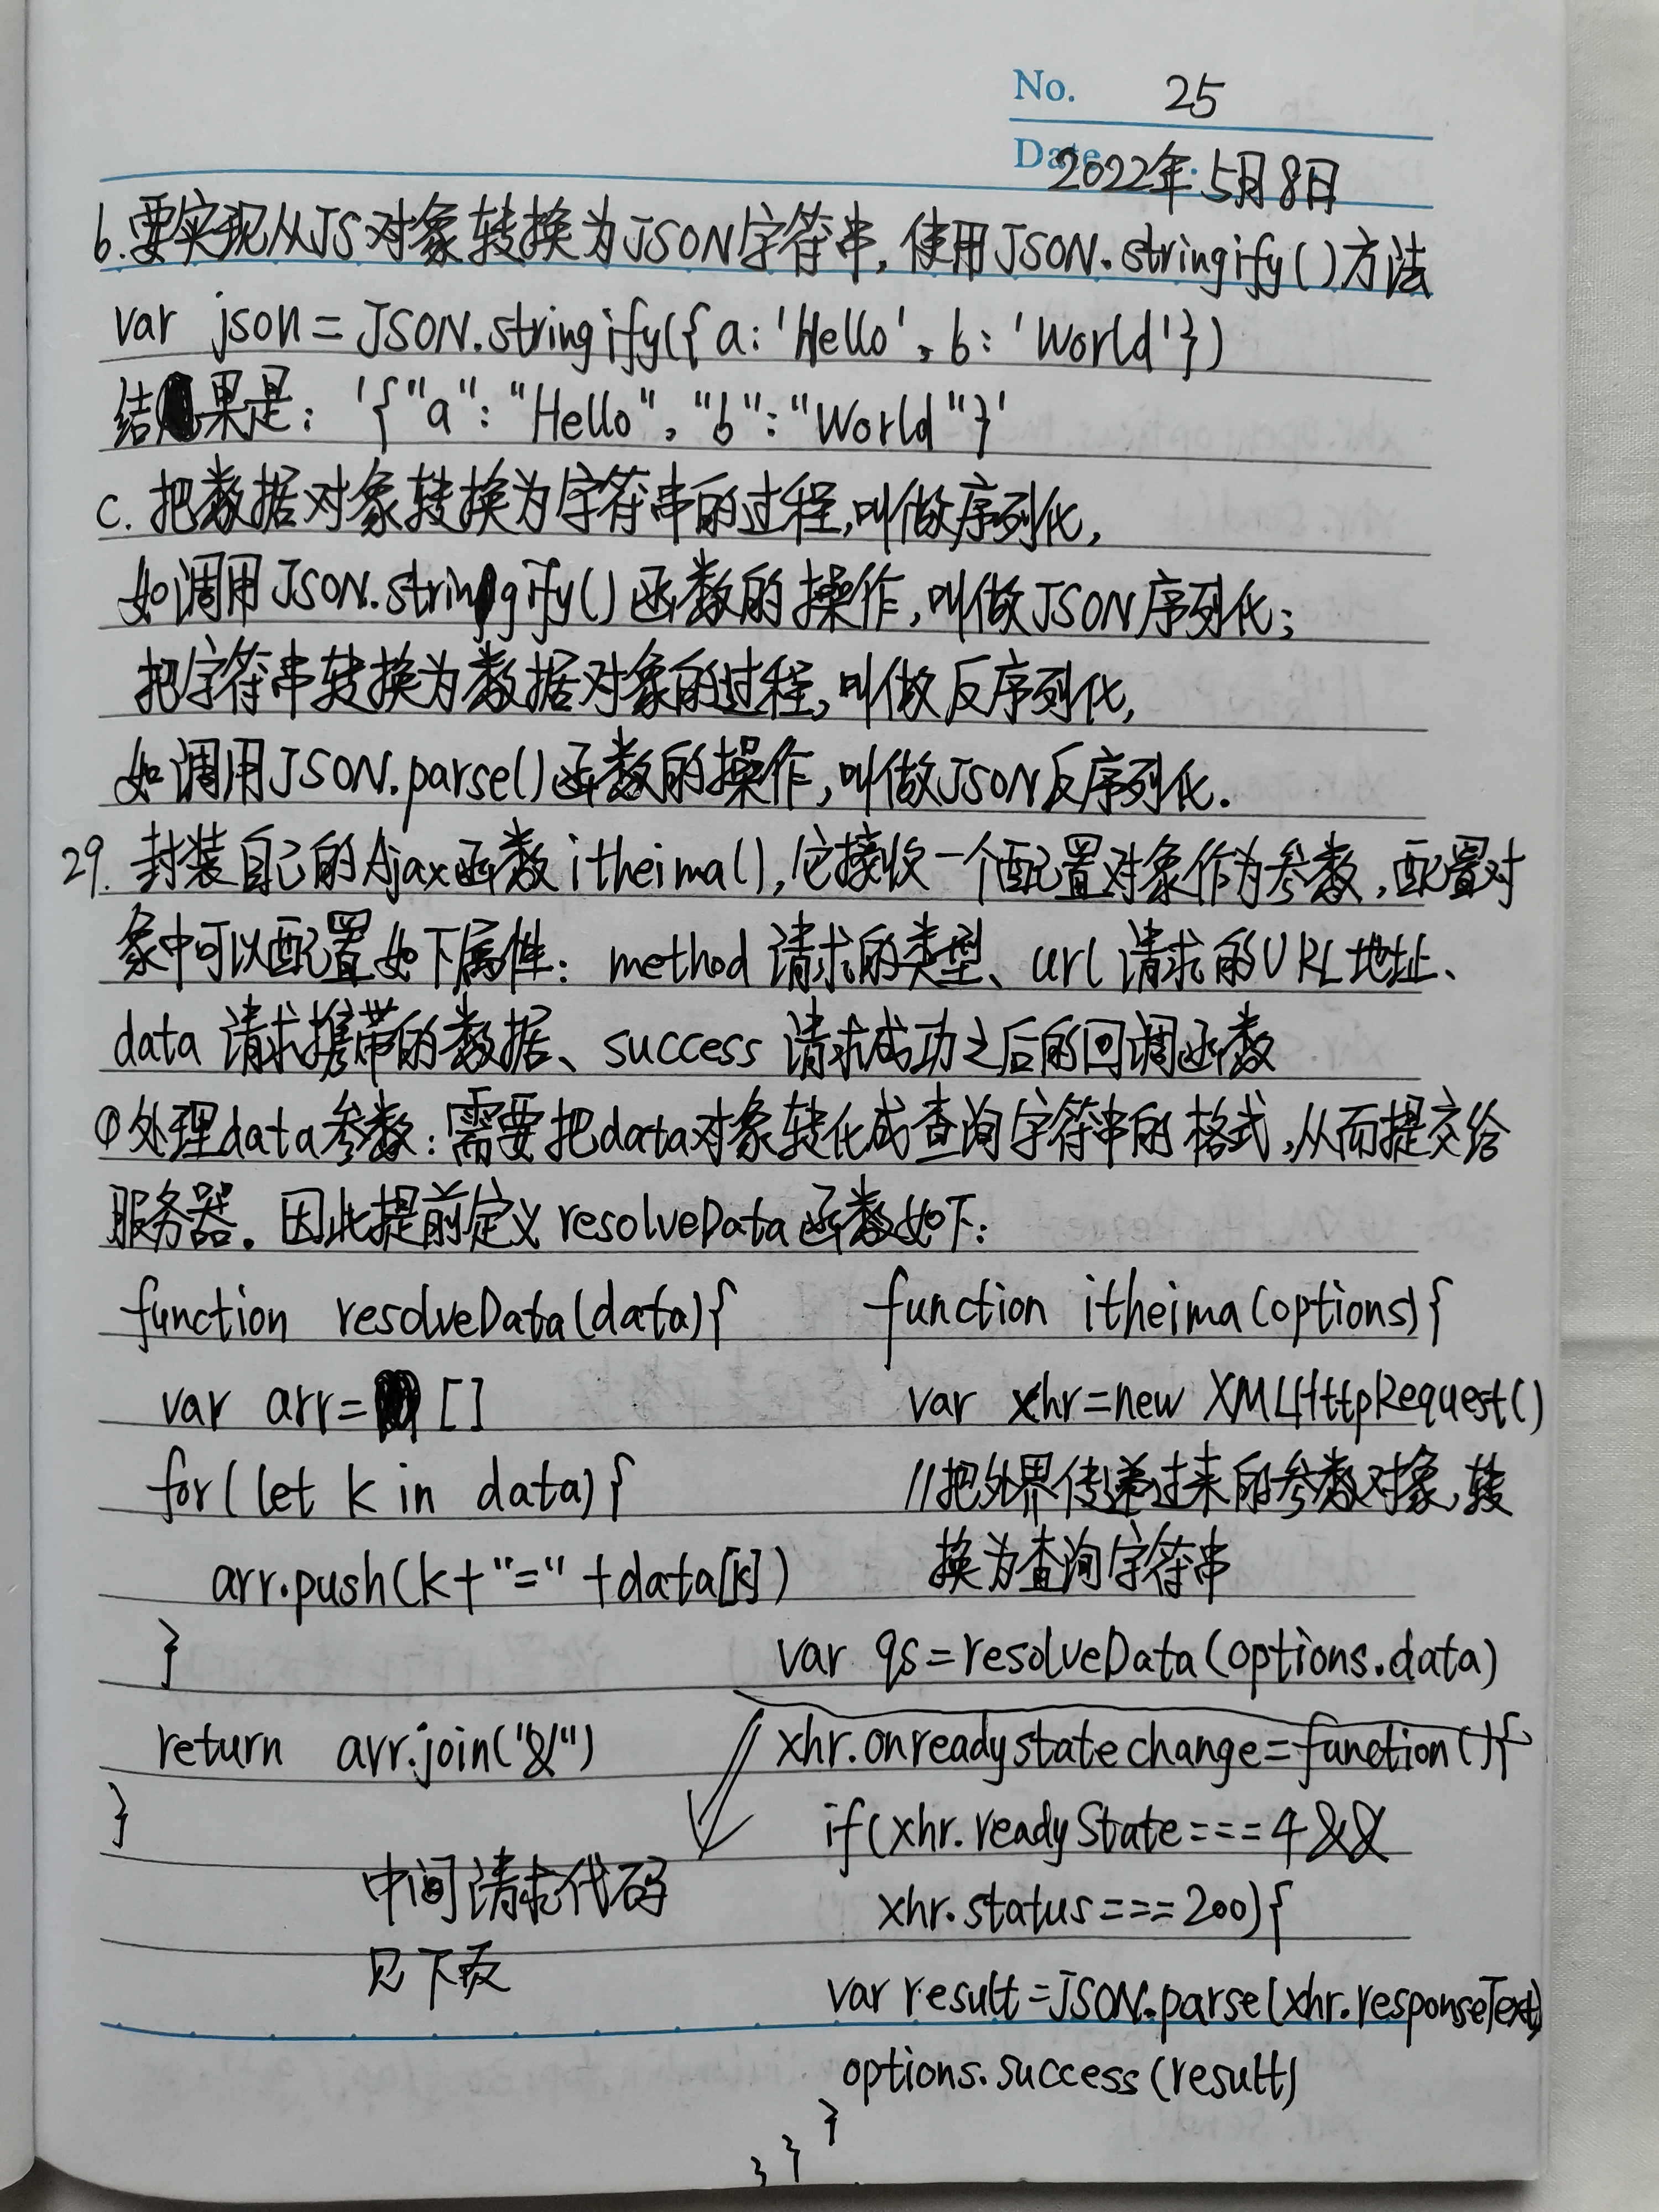 No. 25
Date 2022年5月8日
b.要实现从JS对象转换为JSON字符串,使用JSON.stringify()方法
var json=JSON.stringify({a:'Hello',b:'World'})
结果是:'{"a":"Hello","b":"World"}'
c.把数据对象转换为字符串的过程,叫做序列化,
如调用JSON.stringify()函数的操作,叫做JSON序列化;
把字符串转换为数据对象的过程,叫做反序列化,
如调用JSON.parse()函数的操作,叫做JSON反序列化.
29.封装自己的Ajax函数itheima(),它接收一个配置对象作为参数,配置对
象中可以配置如下属性:method请求的类型、url请求的URL地址、
data请求携带的数据、success请求成功之后的回调函数
①处理data参数:需要把data对象转化成查询字符串的格式,从而提交给
服务器。因此提前定义resolveData函数如下:
function resolveData(data){
var arr=[]
for(let k in data){
arr.push(k+"="+data[k])
}
return arr.join("&")
}
中间请求代码
见下页
function itheima(options){
var xhr=new XMLHttpRequest()
//把外界传递过来的参数对象,转
换为查询字符串
var qs=resolveData(options.data)
xhr.onreadystatechange=function(){
if(xhr.readyState===4&&
xhr.status===200){
var result=JSON.parse(xhr.responseText)
options.success(result)
}
}
}